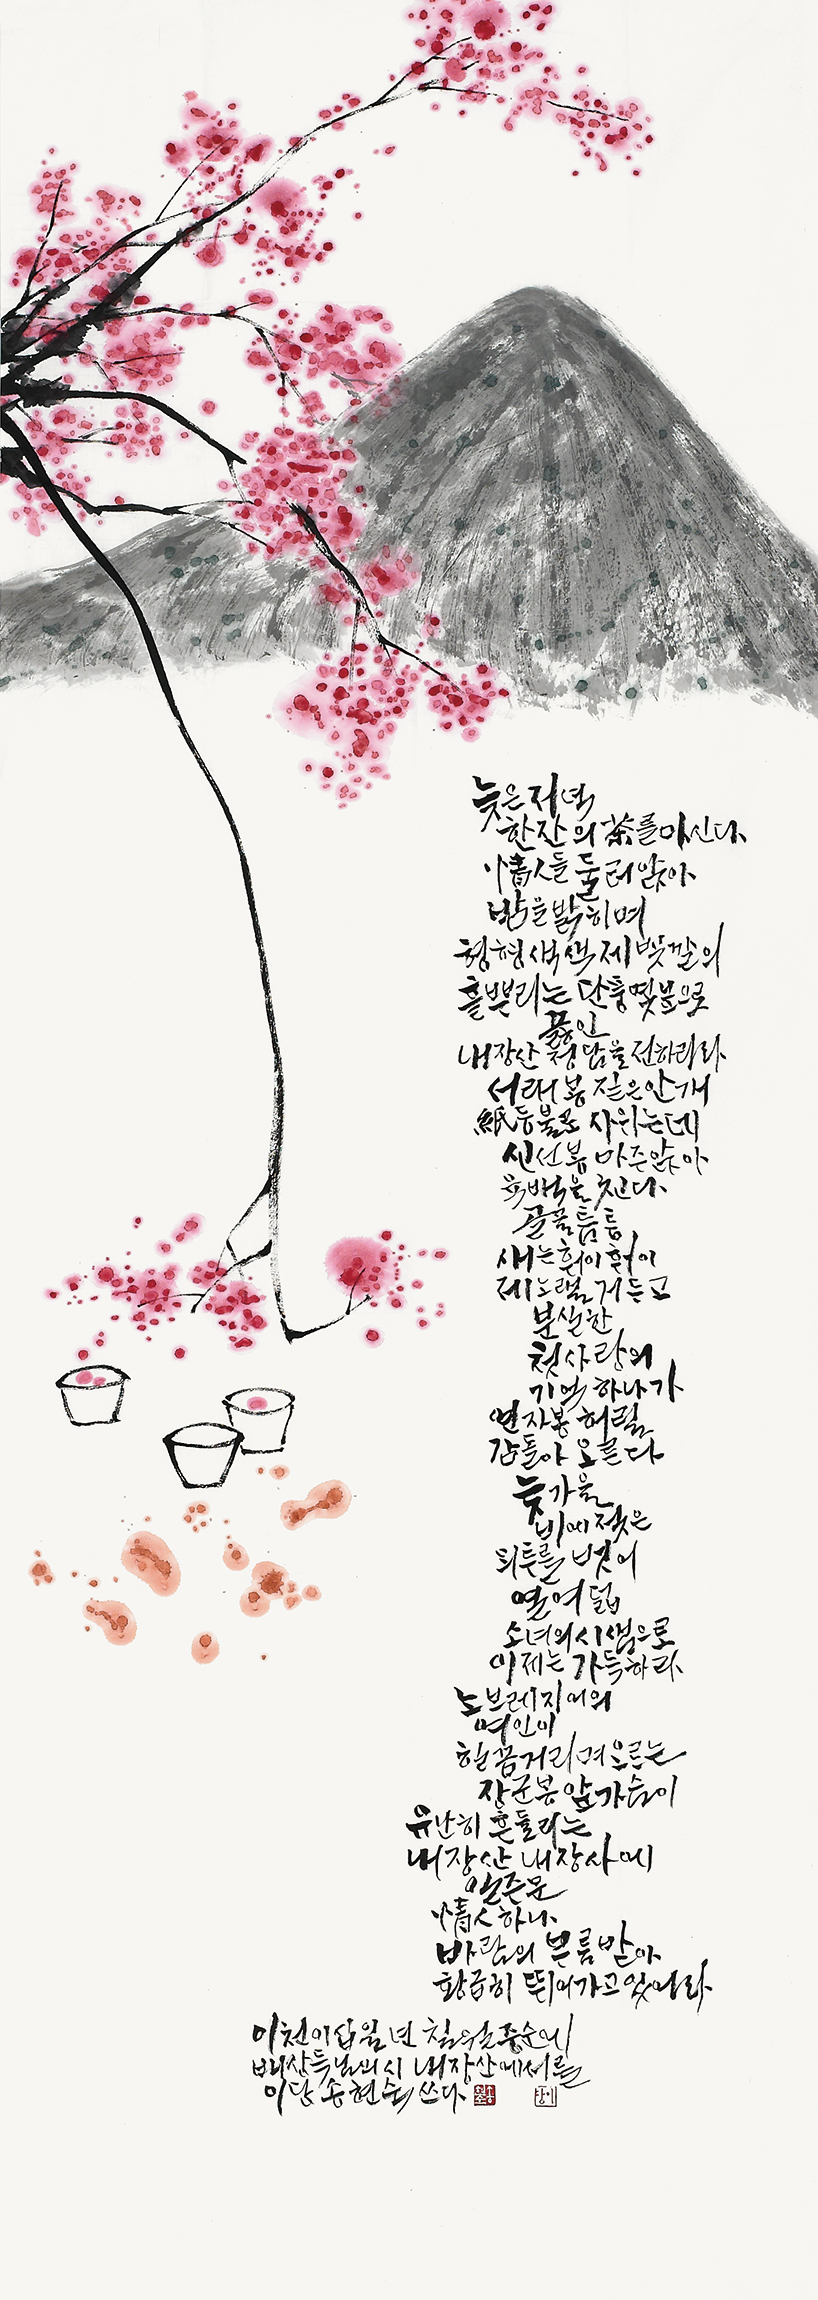 늦은 저녁
한잔의 茶를 마신다.
情人들 둘러앉아
밤을 밝히며
형형색색 제 빛깔의
흩뿌리는 단풍 몇 봄으로
끓인
내장산 정담을 전하리라
서래봉 짙은 안개
紙등불로 사위는데
신선봉 마주앉아
육백을 친다.
골골 틈틈
새는 훠이 훠이
제 노랠 거듭고
분실한
첫사랑의
기억 하나가
연자봉 허릴
감돌아 오른다
늦가을
비에 젖은
외투를 벗어
열여덟
소녀의 시샘으로
이제는 가득하라.
노브레지어의
여인이
힐끔거리며 오르는
장군봉 앞가슴이
유난히 흔들리는
내장산 내장사에
일주문
情人 하나.
바람의 부름 받아
황급히 뛰어가고 있어라
이천이십일년 칠월 중순에
배상득님의 시 내장산에서를
이당 송현숙 쓰다.